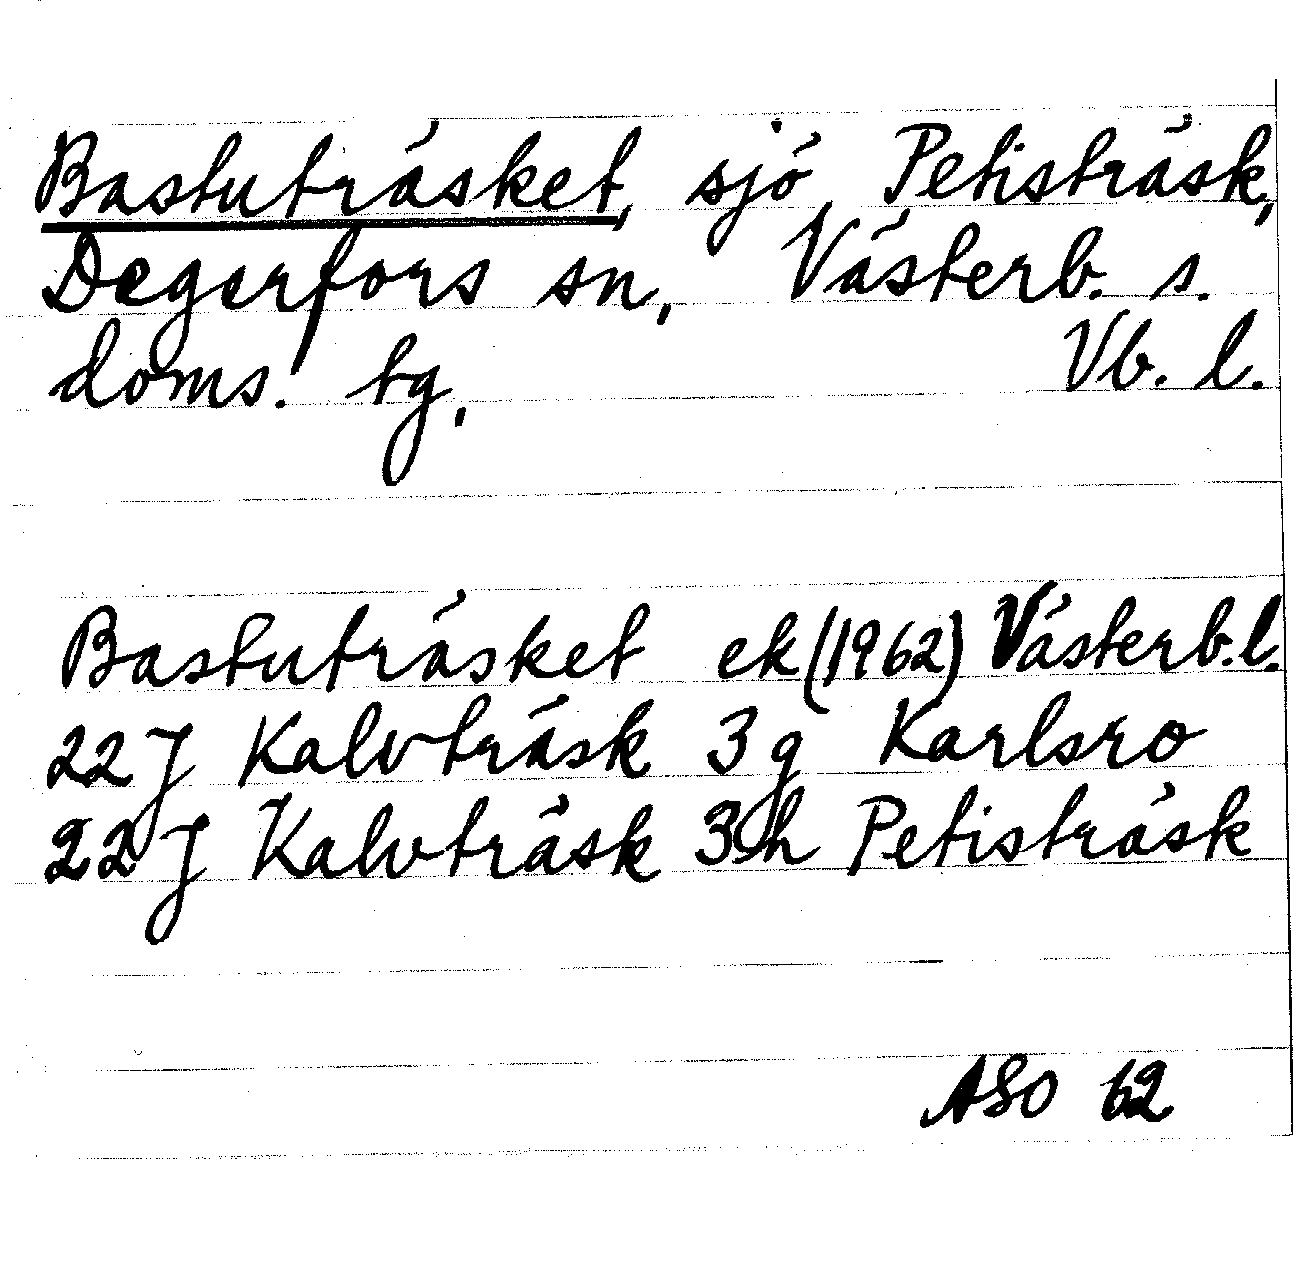 Bastuträsket, sjö, Petisträsk,
Degerfors sn, Västerb. s.
doms. tg. Vb. l.
Bastuträsket ek (1962) Västerb. l.
22 J Kalvträsk 3 g Karlsro
22 J Kalvträsk 3 h Petisträsk
ASO 62